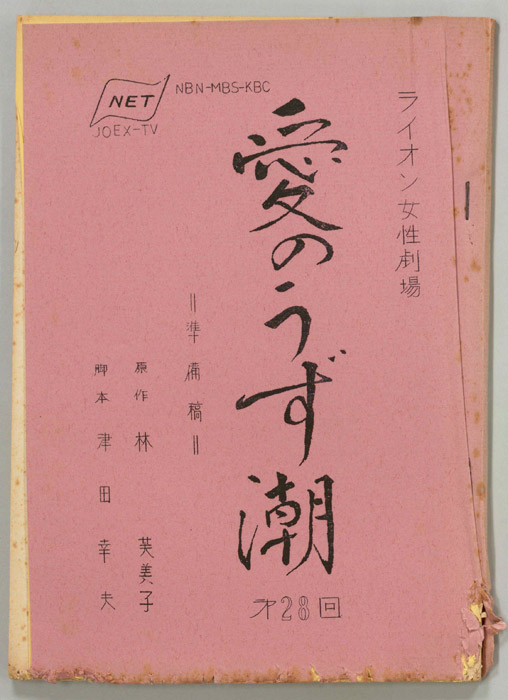 NET
JOEX-TV
NBN-MBS-KBC
ライオン女性劇場
愛のうず潮
才28回
=準備稿=
原作 林 芙美子
脚本 津田幸夫